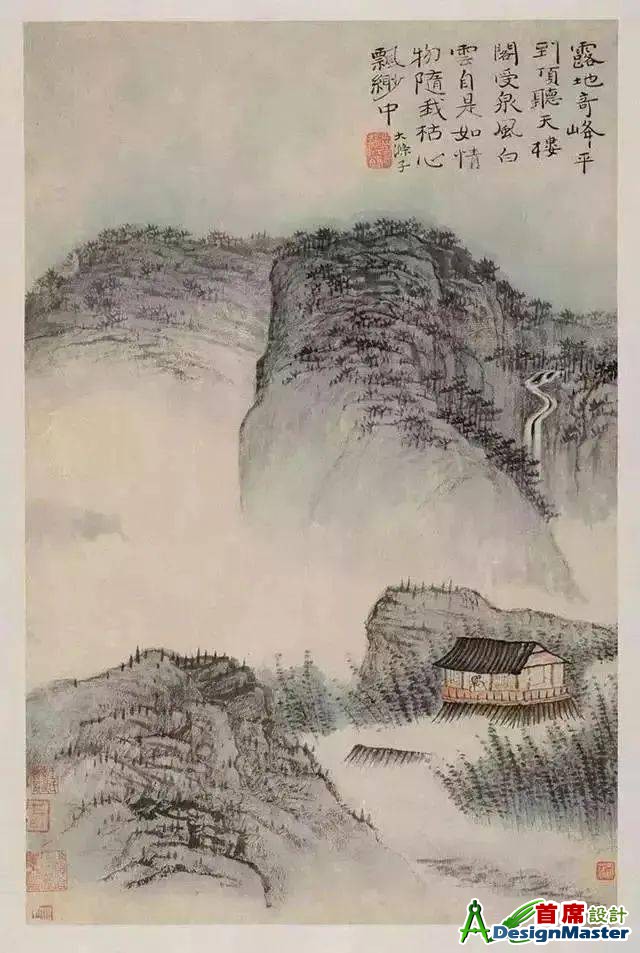 露地奇峰平
到頂聽天樓
閣受泉風白
雲自是如情
物隨我枯心
飄緲中
大滌子
首席設計
ADesignMaster